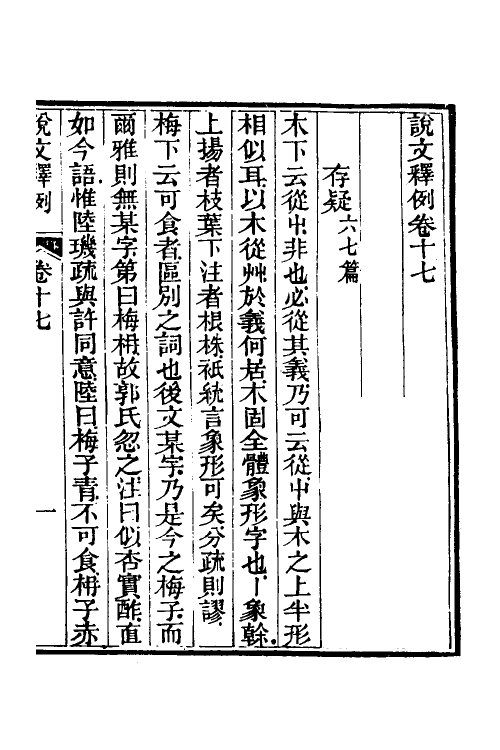 說文釋例卷十七
存疑六七篇
木下云從屮非也必從其義乃可云從屮與木之上半形
相似耳以木從艸於義何居木固全體象形字也丨象榦
上揚者枝葉下注者根株祇統言象形可矣分疏則謬
梅下云可食者區別之詞也後文某字乃是今之梅子而
爾雅則無某字第曰梅枏故郭氏忽之注曰似杏實酢直
如今語惟陸璣疏與許同意陸曰梅子青不可食枏子赤
說文釋例 卷十七 一